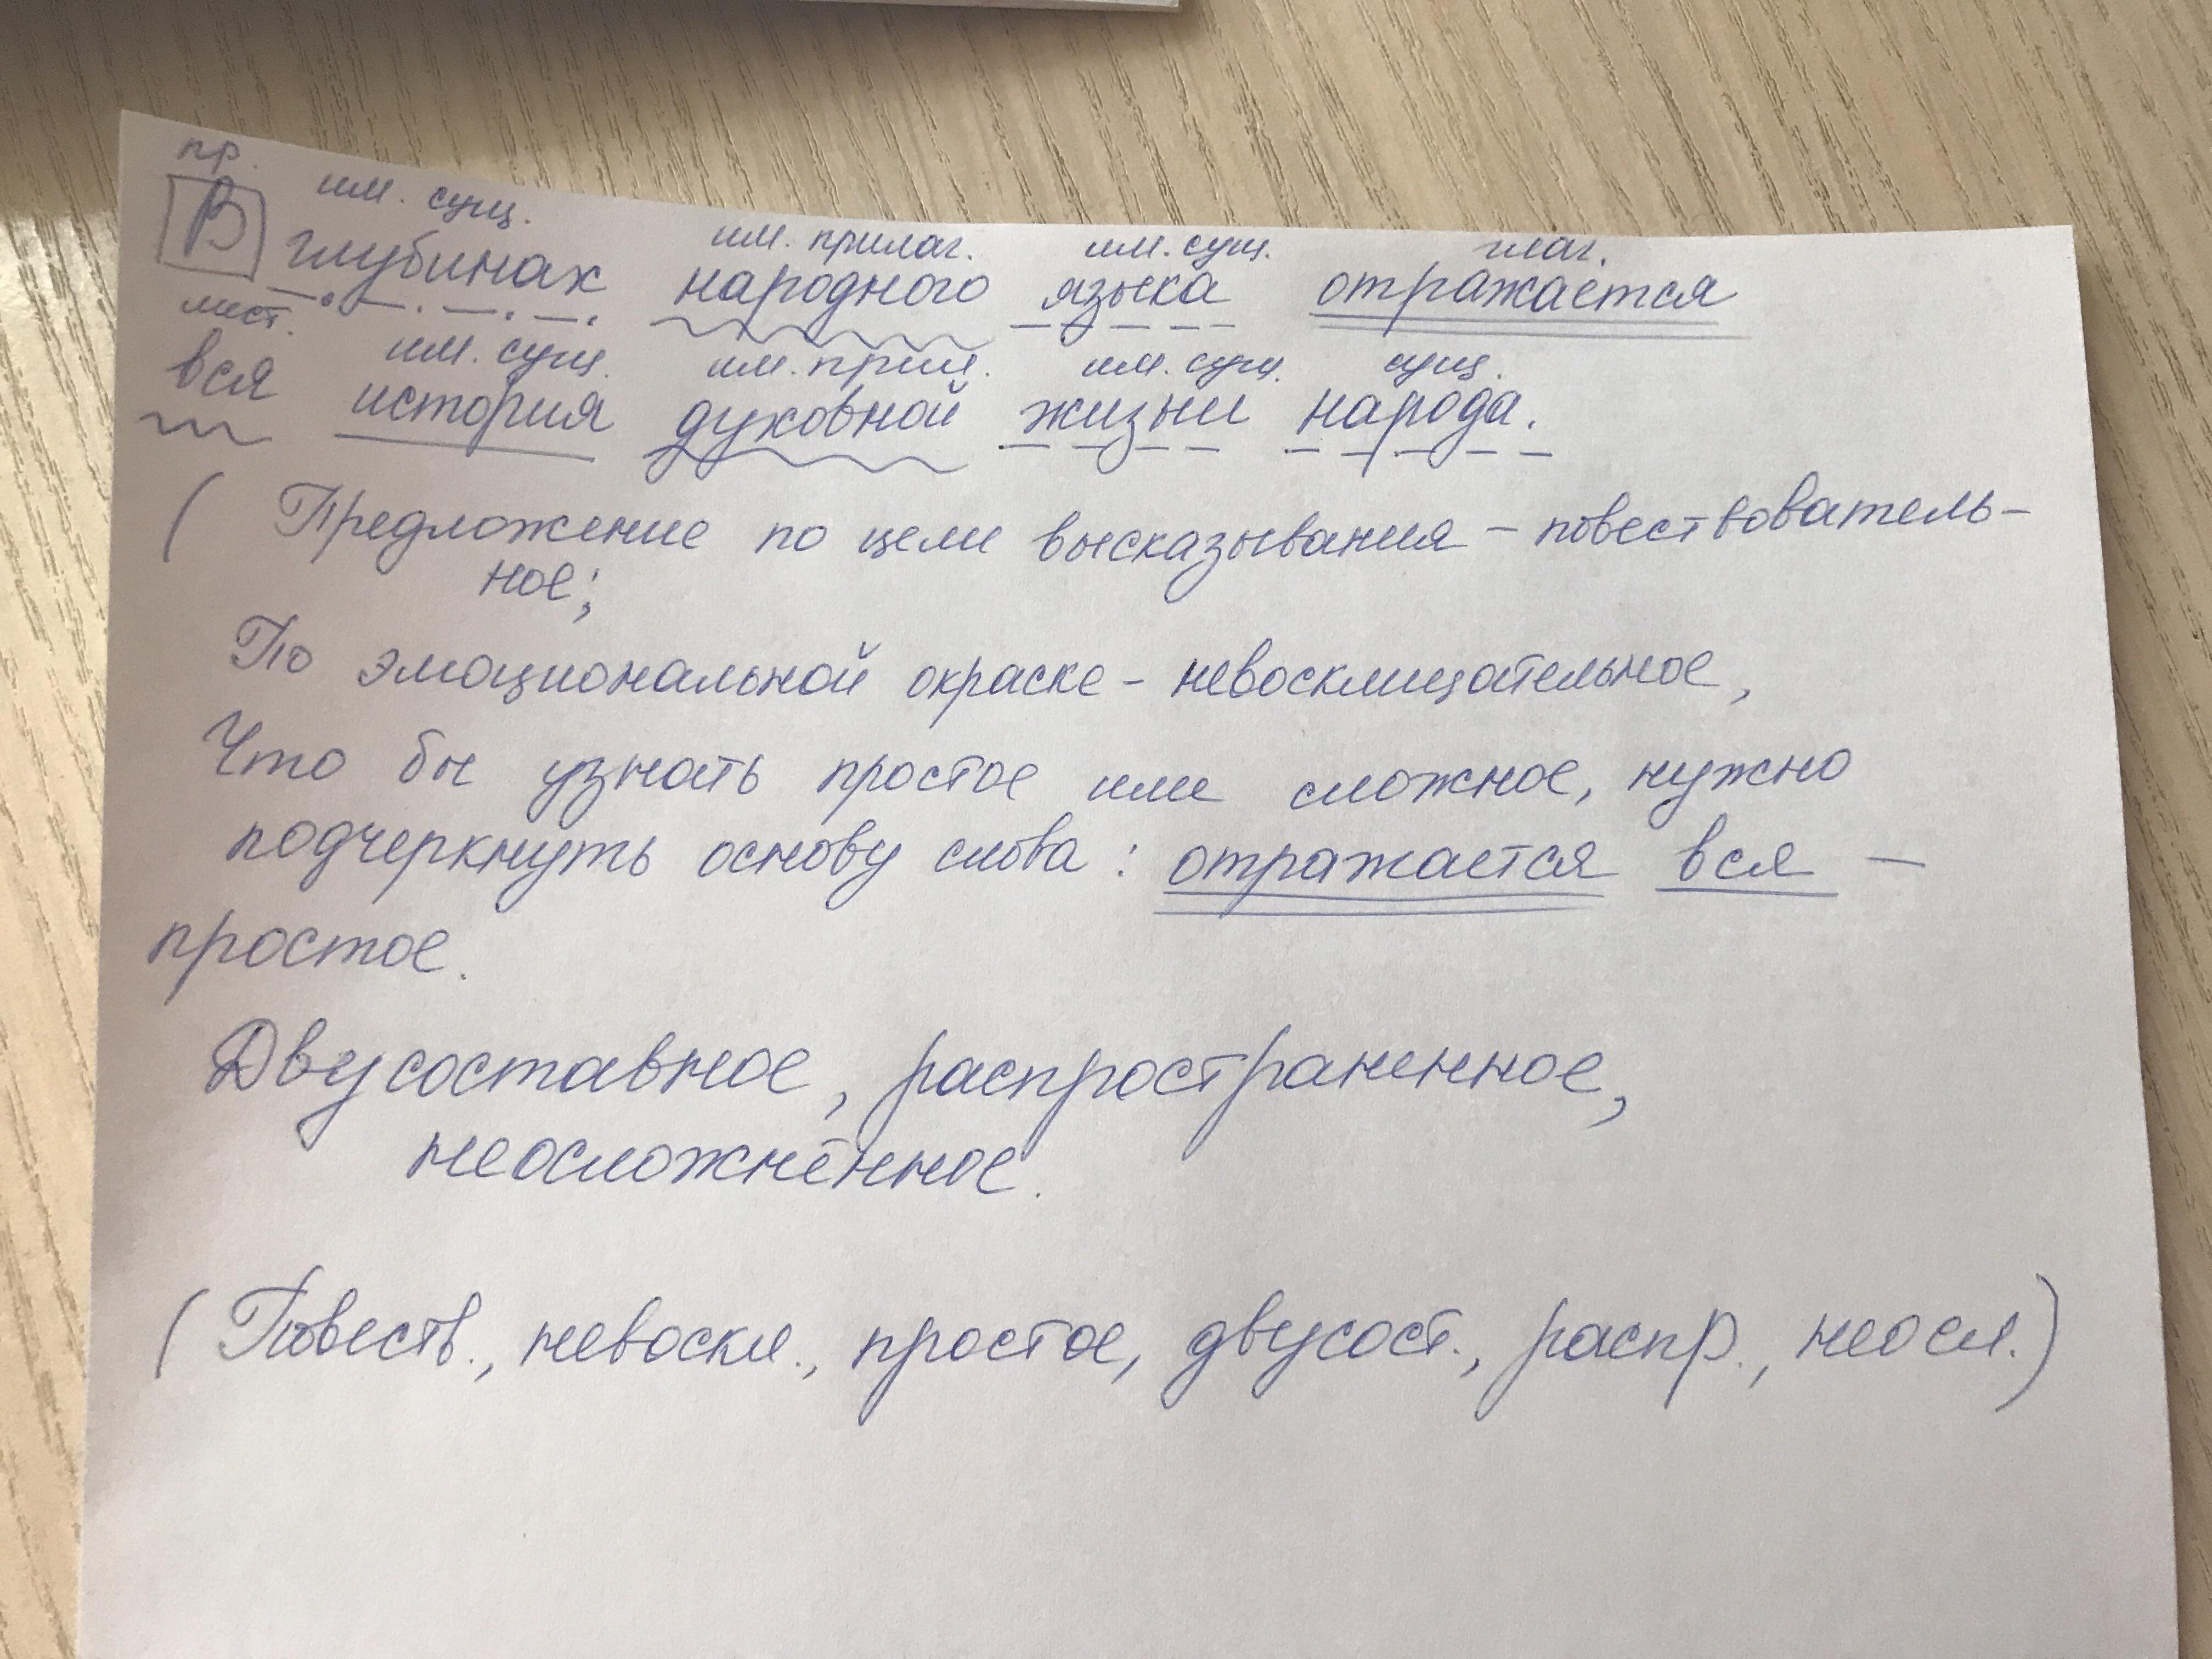 пр. им. сущ. им. прилаг. им. сущ. глаг.
В глубинах народного языка отражается
мест. им. сущ. им. прил. им. сущ. сущ.
вся история духовной жизни народа.
( Предложение по цели высказывания – повествователь-
ное;
По эмоциональной окраске - невосклицательное,
Что бы узнать простое или сложное, нужно
подчеркнуть основу слова : отражается вся –
простое.
Двусоставное, распространенное,
неосложнённое.
(Повеств., невоскл., простое, двусост., распр., неосл.)